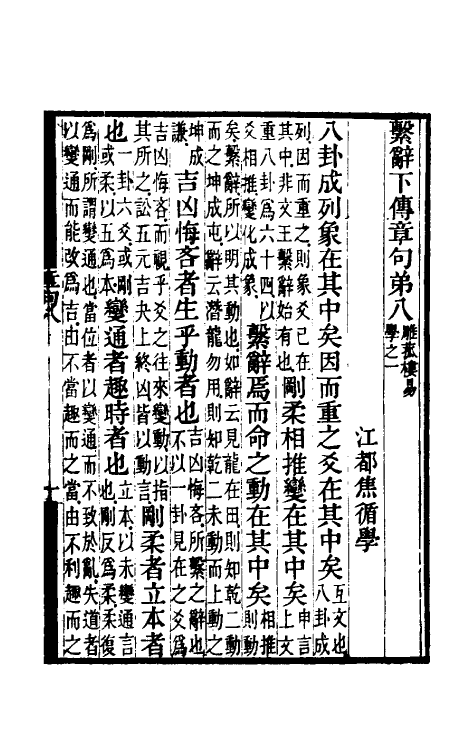 繫辭下傳章句弟八雕菰樓易
學之一
江都焦循學
八卦成列象在其中矣因而重之爻在其中矣互文也
八卦成
列因而重之則象爻已在
其中非文王繫辭始有也剛柔相推變在其中矣申言
上文
重八卦爲六十四以
爻相推變化成象繫辭焉而命之動在其中矣相推
則動
矣繫辭所以明其動也如辭云見龍在田則知乾二動
而之坤成屯辭云潛龍勿用則知乾二未動而上動之
坤成
謙吉凶悔吝者生乎動者也吉凶悔吝所繫之辭也
不以一卦見在之爻爲
吉凶悔吝而視乎爻之往來變動以指
其所之訟五元吉夬上終凶皆以動言剛柔者立本者
也一卦六爻或剛
或柔以五爲本變通者趣時者也立本以未變通言
也剛反爲柔柔復
爲剛所謂變通也當位者以變通而不致於亂失道者
以變通而能改爲吉由不當趣而之當由不利趣而之